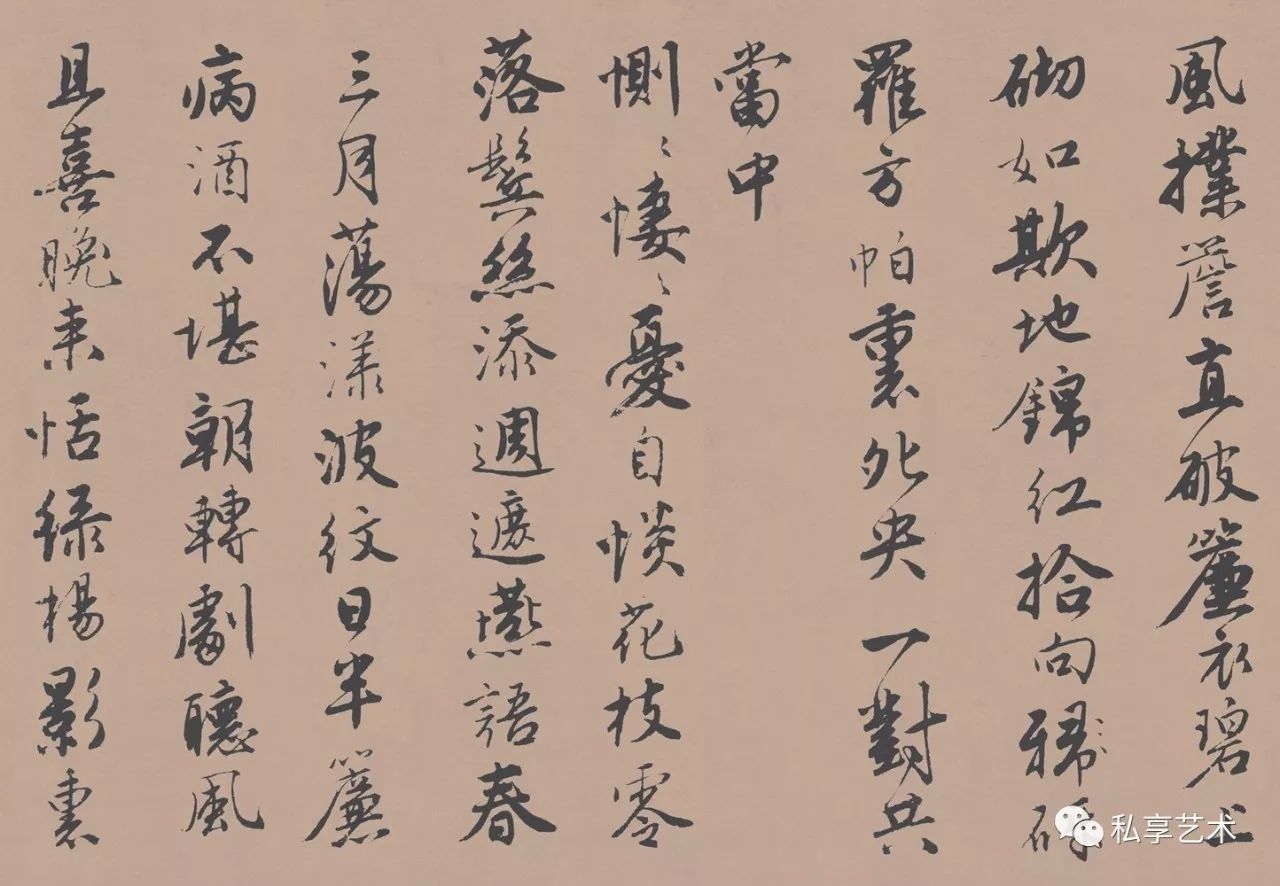 風撲詹直破簾衣碧上
砌如欺地錦紅拾向
羅方帕裏夗央一對共
當中
惻〻悽〻憂自惔花枝零
落鬢絲添週遮燕語春
三月蕩漾波紋日半簾
病酒不堪朝轉劇聽風
且喜晚来恬綠楊影裏
私享艺术